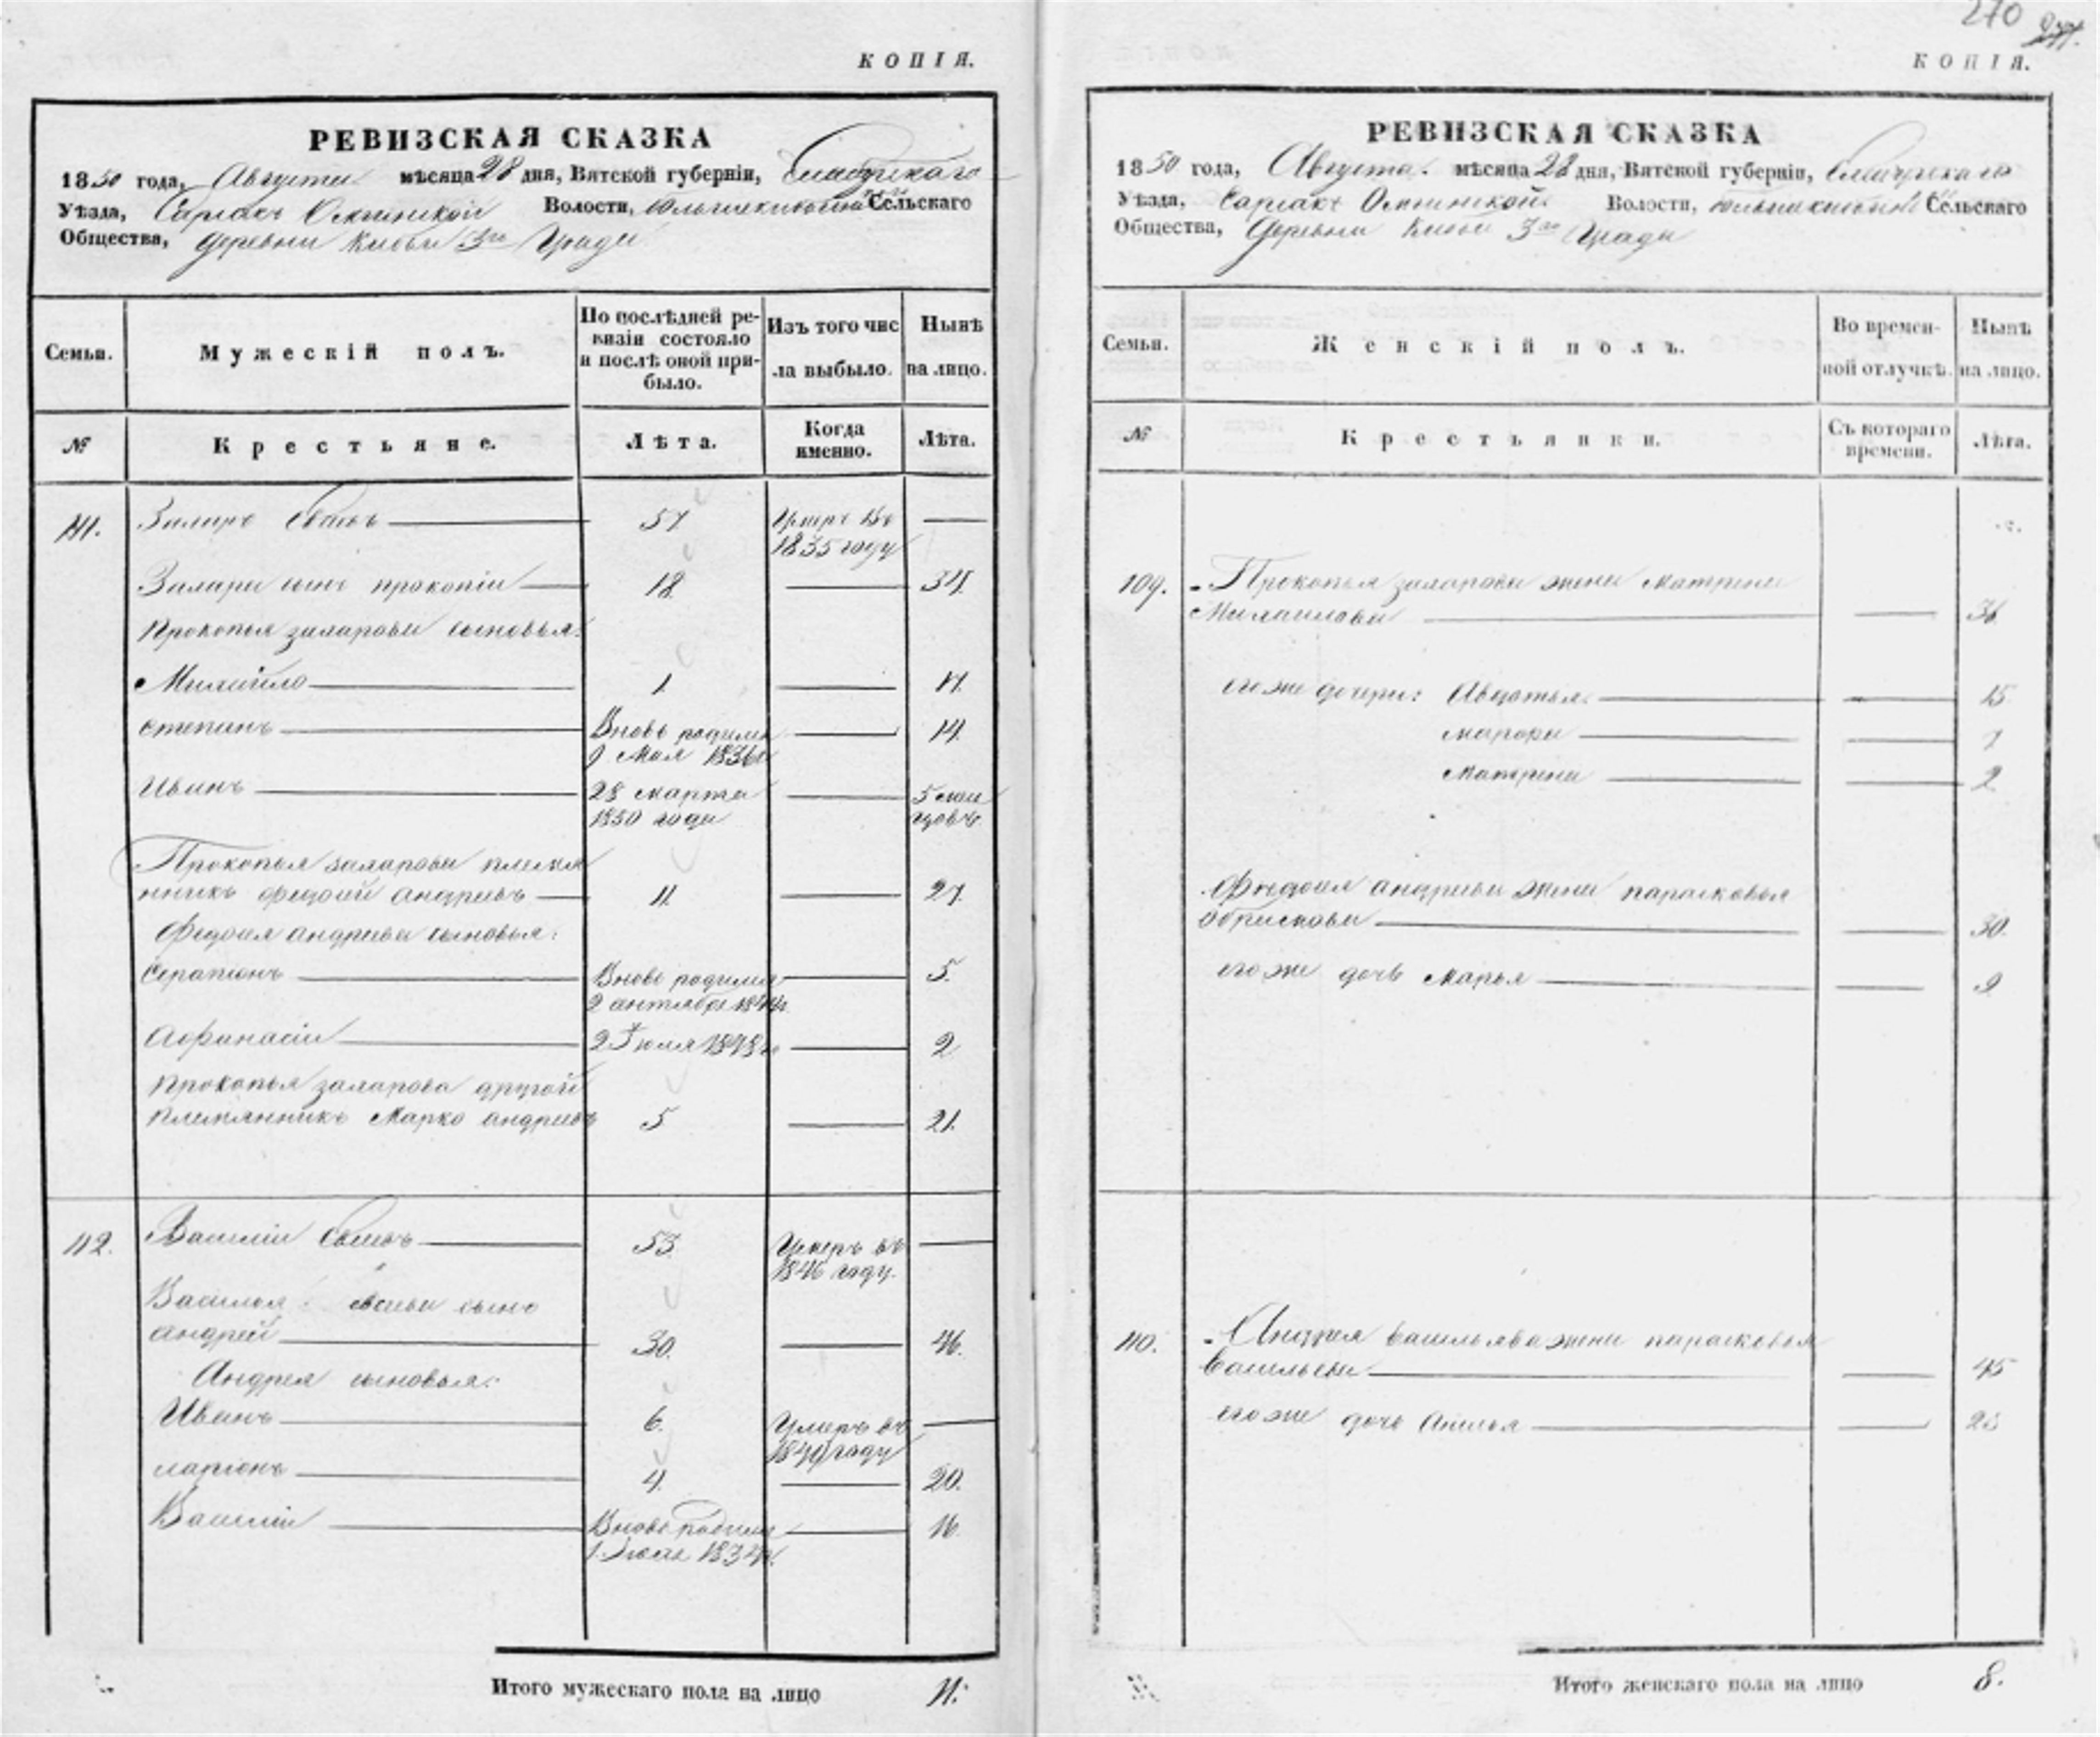 КОПІЯ.
РЕВИЗСКАЯ СКАЗКА
1850 года, Августа мѣсяца 28 дня, Вятской губерніи, Елабужскаго
Уѣзда, Волости, Сельскаго
Общества, деревни 3го
Семьи. Мужескій полъ. По послѣдней ре-
визіи состояло
и послѣ оной при-
было. Изъ того чис
ла выбыло. Нынѣ
на лицо.
№ Крестьяне. Лѣта. Когда
именно. Лѣта.
111. Захаръ 51 Умеръ въ
1835 году
Захара сынъ прокопій 18. 34.
Прокопья захарова сыновья:
Михайло 1. 17.
степанъ Вновь родился 14.
9 Мая 1836г
Иванъ 28 марта 5 мѣся
1850 года цовъ.
Прокопья захарова племя
нникъ федосій андреевъ 11. 27.
Федосѣя андреева сыновья:
Серапіонъ Вновь родился 5.
1844г.
Афанасій 2 Іюля 1848г 2
Прокопья захарова другой
племянникъ Марко андреевъ 5 21.
112. Василій 53. Умеръ въ
1846 году.
Василья сынъ
андрей 30. 46.
Андрея сыновья:
Иванъ 6. Умеръ въ
году
ларіонъ 4. 20.
Василій Вновь родился 16.
1834г.
Итого мужескаго пола на лицо 11.
270
КОПІЯ.
РЕВИЗСКАЯ СКАЗКА
1850 года, Августа мѣсяца 28 дня, Вятской губерніи, Елабужскаго
Уѣзда, Волости, Сельскаго
Общества, Деревни 3го
Семьи. Женскій полъ. Во времен-
ной отлучкѣ. Нынѣ
на лицо.
№ Крестьянки. Съ котораго
времени. Лѣта.
109. Прокопья захарова жена матрена
Михаилова 36
его же дочери: Авдотья 15
марфа 7
Матрена 2
Федосѣя андреева жена парасковья
30.
его же дочь марья 9
110. Андрея васильева жена парасковья
васильева 45
его же дочь
Итого женскаго пола на лицо 8.